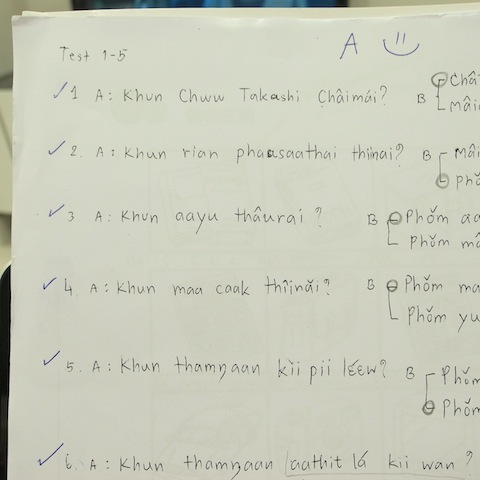 Test 1-5 A
1 A: Khun Chww Takashi Châimái? B Châi
Mâi
2. A: Khun rian phaasaathai thîinai? B Mâi
3 A: Khun aayu thâurai? B Phǒm
Phǒm
4. A: Khun maa caak thîinǎi? B Phǒm
Phǒm
5. A: Khun thamŋaan kìi pii lɛ́ɛw? B Phǒm
Phǒm
6. A: Khun thamŋaan aathit lá kìi wan?